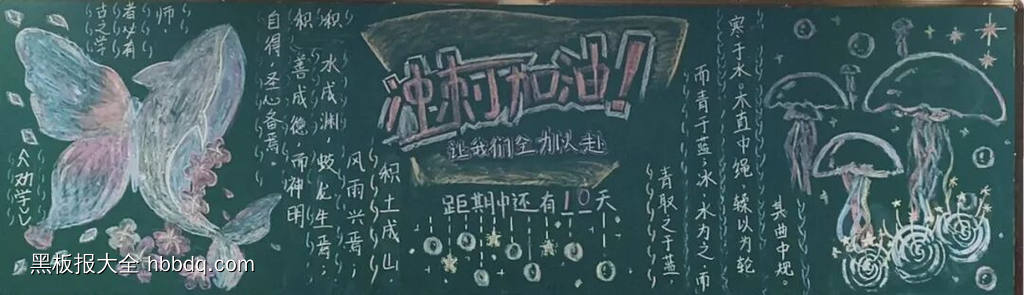 冲刺加油!
让我们全力以赴
距期中还有10天
古之学
者必有
师.
《劝学》
积土成山,
风雨兴焉;
积水成渊,蛟龙生焉;
积善成德,而神明
自得,圣心备焉。
青取之于蓝,
而青于蓝;冰,水为之,而
寒于水。木直中绳,輮以为轮
其曲中规。
黑板报大全 hbbdq.com